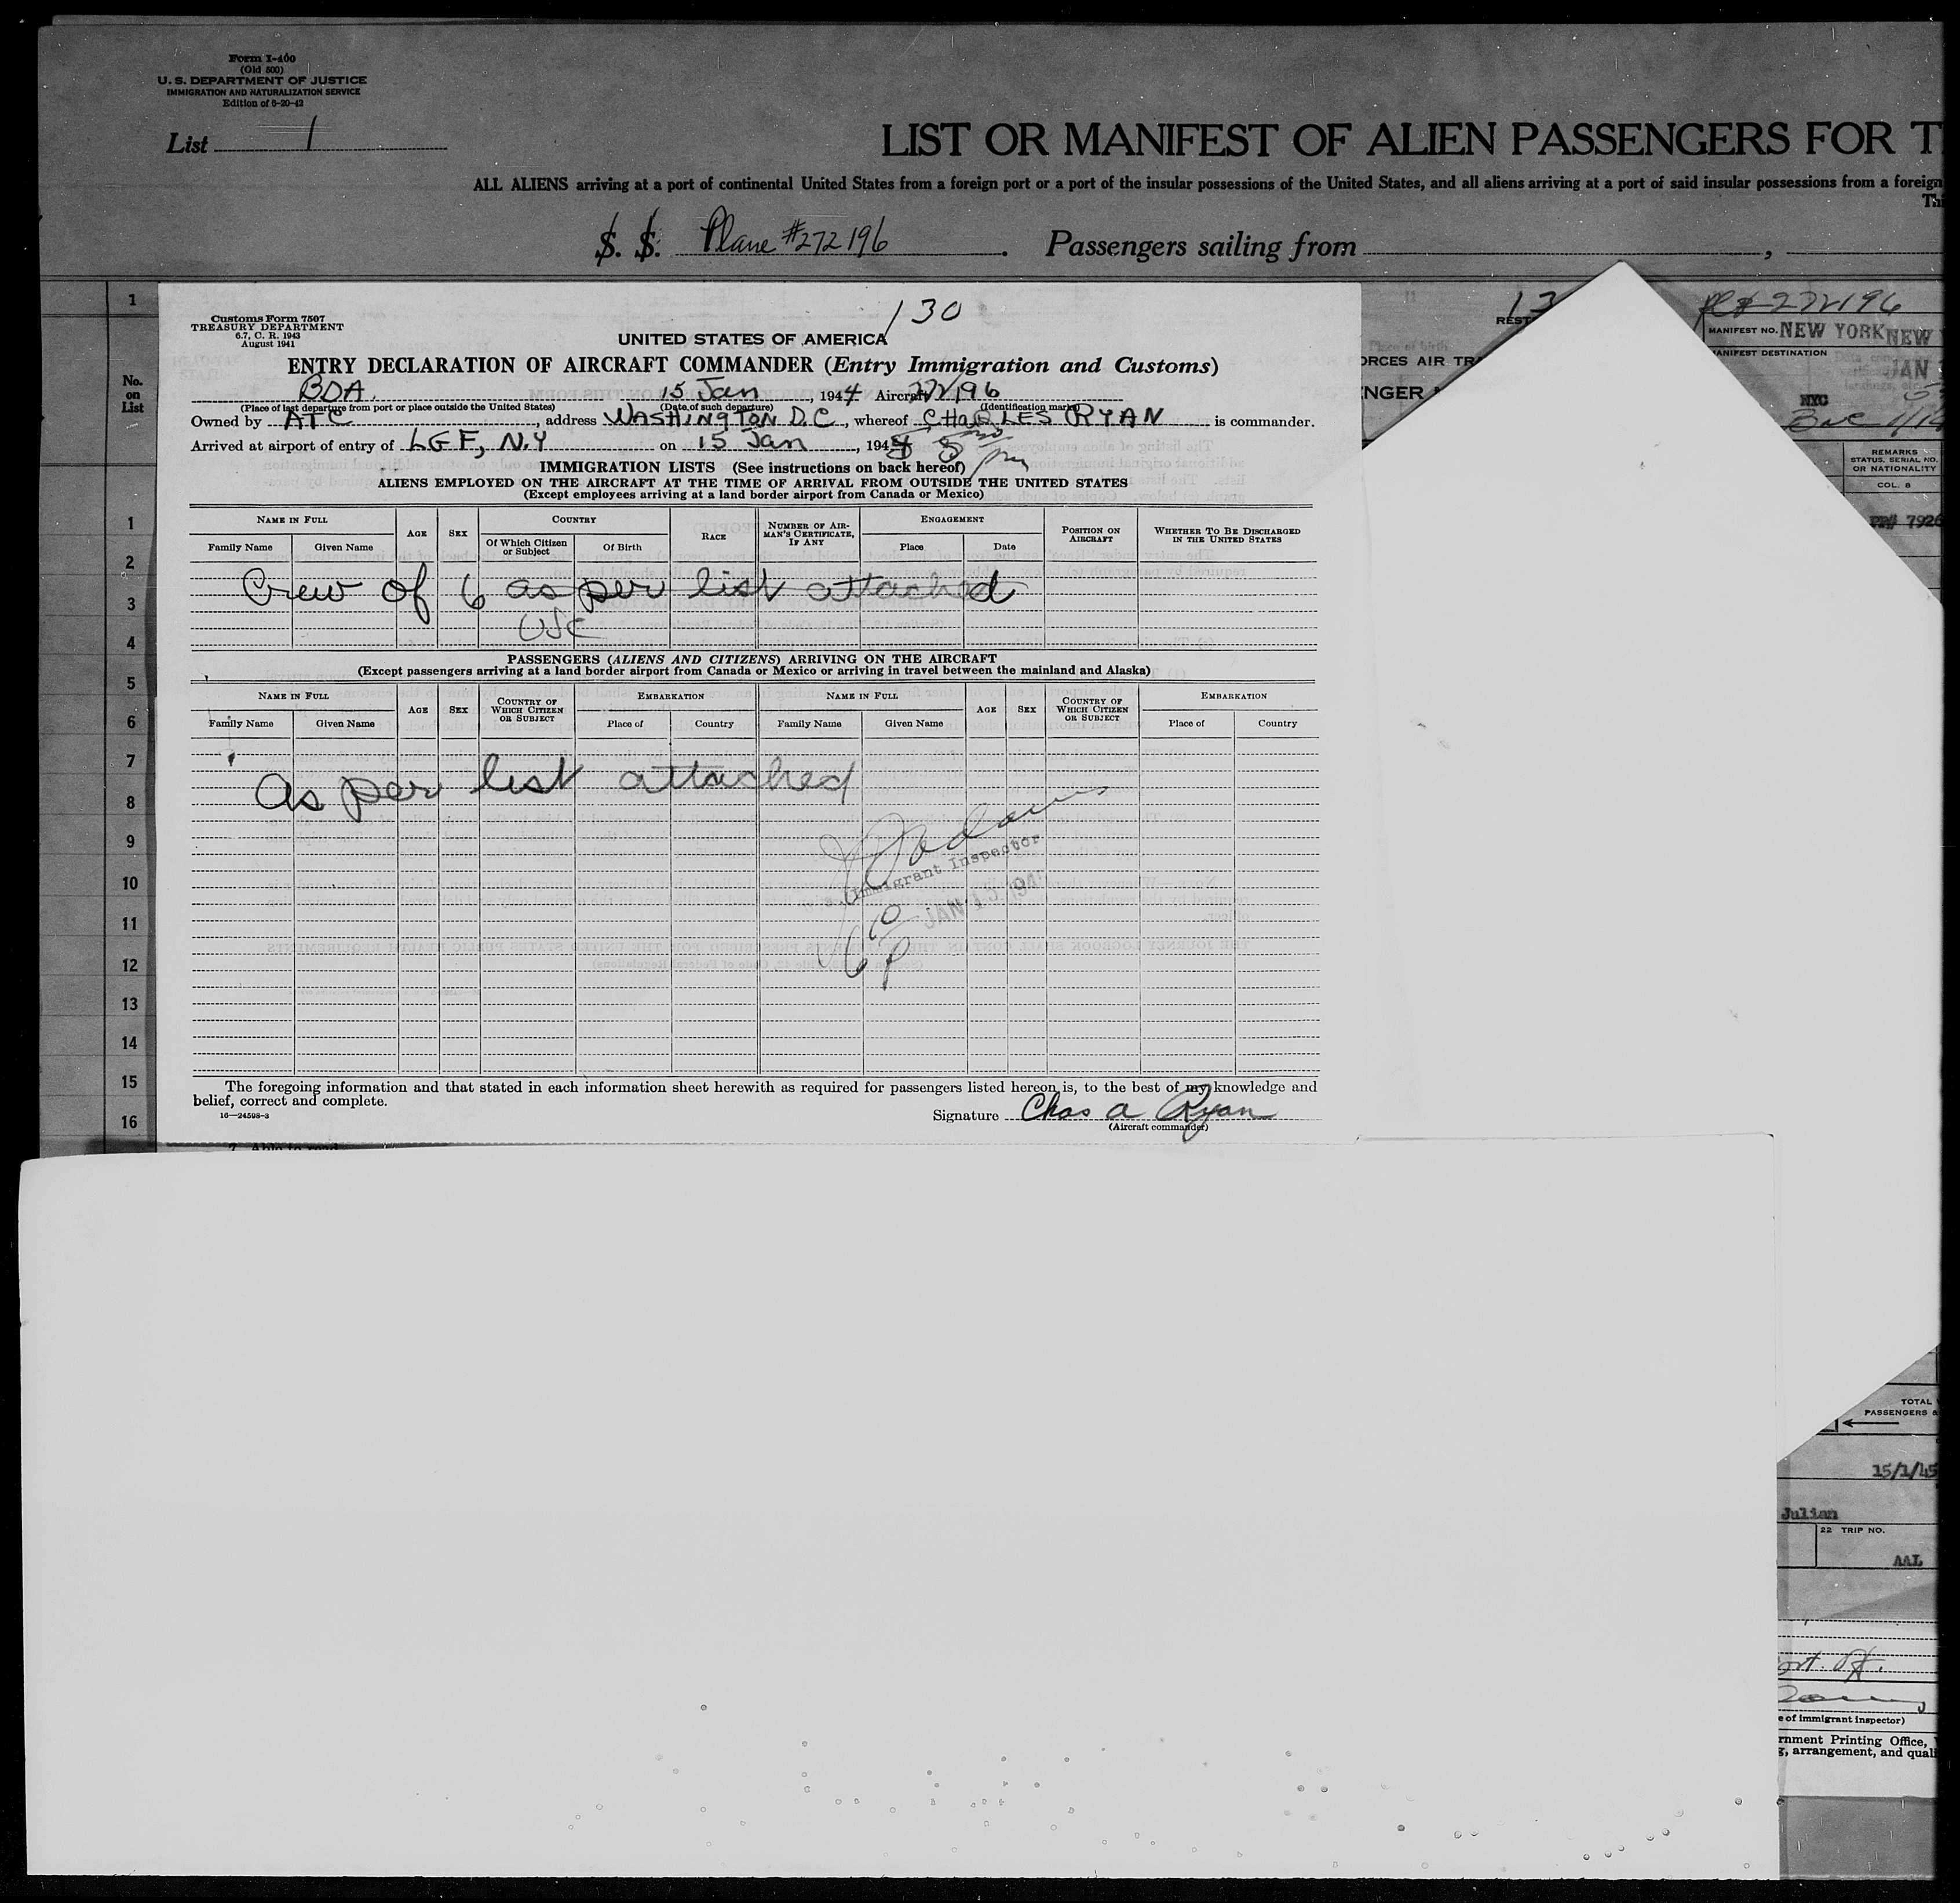 Form I-400
(Old 500)
U. S. DEPARTMENT OF JUSTICE
IMMIGRATION AND NATURALIZATION SERVICE
Edition of 6-20-42
List 1
LIST OR MANIFEST OF ALIEN PASSENGERS FOR T
ALL ALIENS arriving at a port of continental United States from a foreign port or a port of the insular possessions of the United States, and all aliens arriving at a port of said insular possessions from a foreign
Thi
S. S. Plane #272196. Passengers sailing from ,
No.
on
List
1
130
Customs Form 7507
TREASURY DEPARTMENT
6.7, C. R. 1943
August 1941
UNITED STATES OF AMERICA
ENTRY DECLARATION OF AIRCRAFT COMMANDER (Entry Immigration and Customs)
BDA. 15 Jan, 1944 Aircraft 272196
(Place of last departure from port or place outside the United States) (Date of such departure) (Identification marks)
Owned by ATC, address WASHINGTON D.C, whereof CHARLES RYAN is commander.
Arrived at airport of entry of LGF, N.Y on 15 Jan, 194 pm
IMMIGRATION LISTS (See instructions on back hereof)
ALIENS EMPLOYED ON THE AIRCRAFT AT THE TIME OF ARRIVAL FROM OUTSIDE THE UNITED STATES
(Except employees arriving at a land border airport from Canada or Mexico)
NAME IN FULL AGE SEX COUNTRY RACE NUMBER OF AIRMAN'S CERTIFICATE, IF ANY ENGAGEMENT POSITION ON AIRCRAFT WHETHER TO BE DISCHARGED IN THE UNITED STATES
Family Name Given Name Of Which Citizen or Subject Of Birth Place Date
Crew of 6 as per list attached
USC
PASSENGERS (ALIENS AND CITIZENS) ARRIVING ON THE AIRCRAFT
(Except passengers arriving at a land border airport from Canada or Mexico or arriving in travel between the mainland and Alaska)
NAME IN FULL AGE SEX COUNTRY OF WHICH CITIZEN OR SUBJECT EMBARKATION NAME IN FULL AGE SEX COUNTRY OF WHICH CITIZEN OR SUBJECT EMBARKATION
Family Name Given Name Place of Country Family Name Given Name Place of Country
as per list attached
Immigrant Inspector
JAN 15 194
The foregoing information and that stated in each information sheet herewith as required for passengers listed hereon is, to the best of my knowledge and
belief, correct and complete.
16—24598-3
Signature Chas a Ryan
(Aircraft commander)
1
2
3
4
5
6
7
8
9
10
11
12
13
14
15
16
7. Able to read
13
REST
ORCES AIR TRA
NGER
272196
MANIFEST NO. NEW YORK NEW
MANIFEST DESTINATION
JAN
NYC
REMARKS
STATUS, SERIAL NO.
OR NATIONALITY
COL. 8
PP# 7926
TOTAL
PASSENGERS &
15/1/45
Julian
22 TRIP NO.
AAL
e of immigrant inspector)
rnment Printing Office,
g, arrangement, and quali